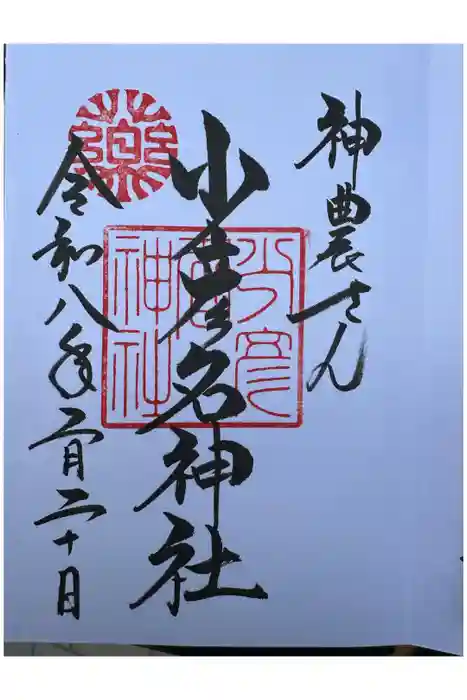 神農さん
少彦名神社
令和八年二月二十日
少彦
名
神社
薬